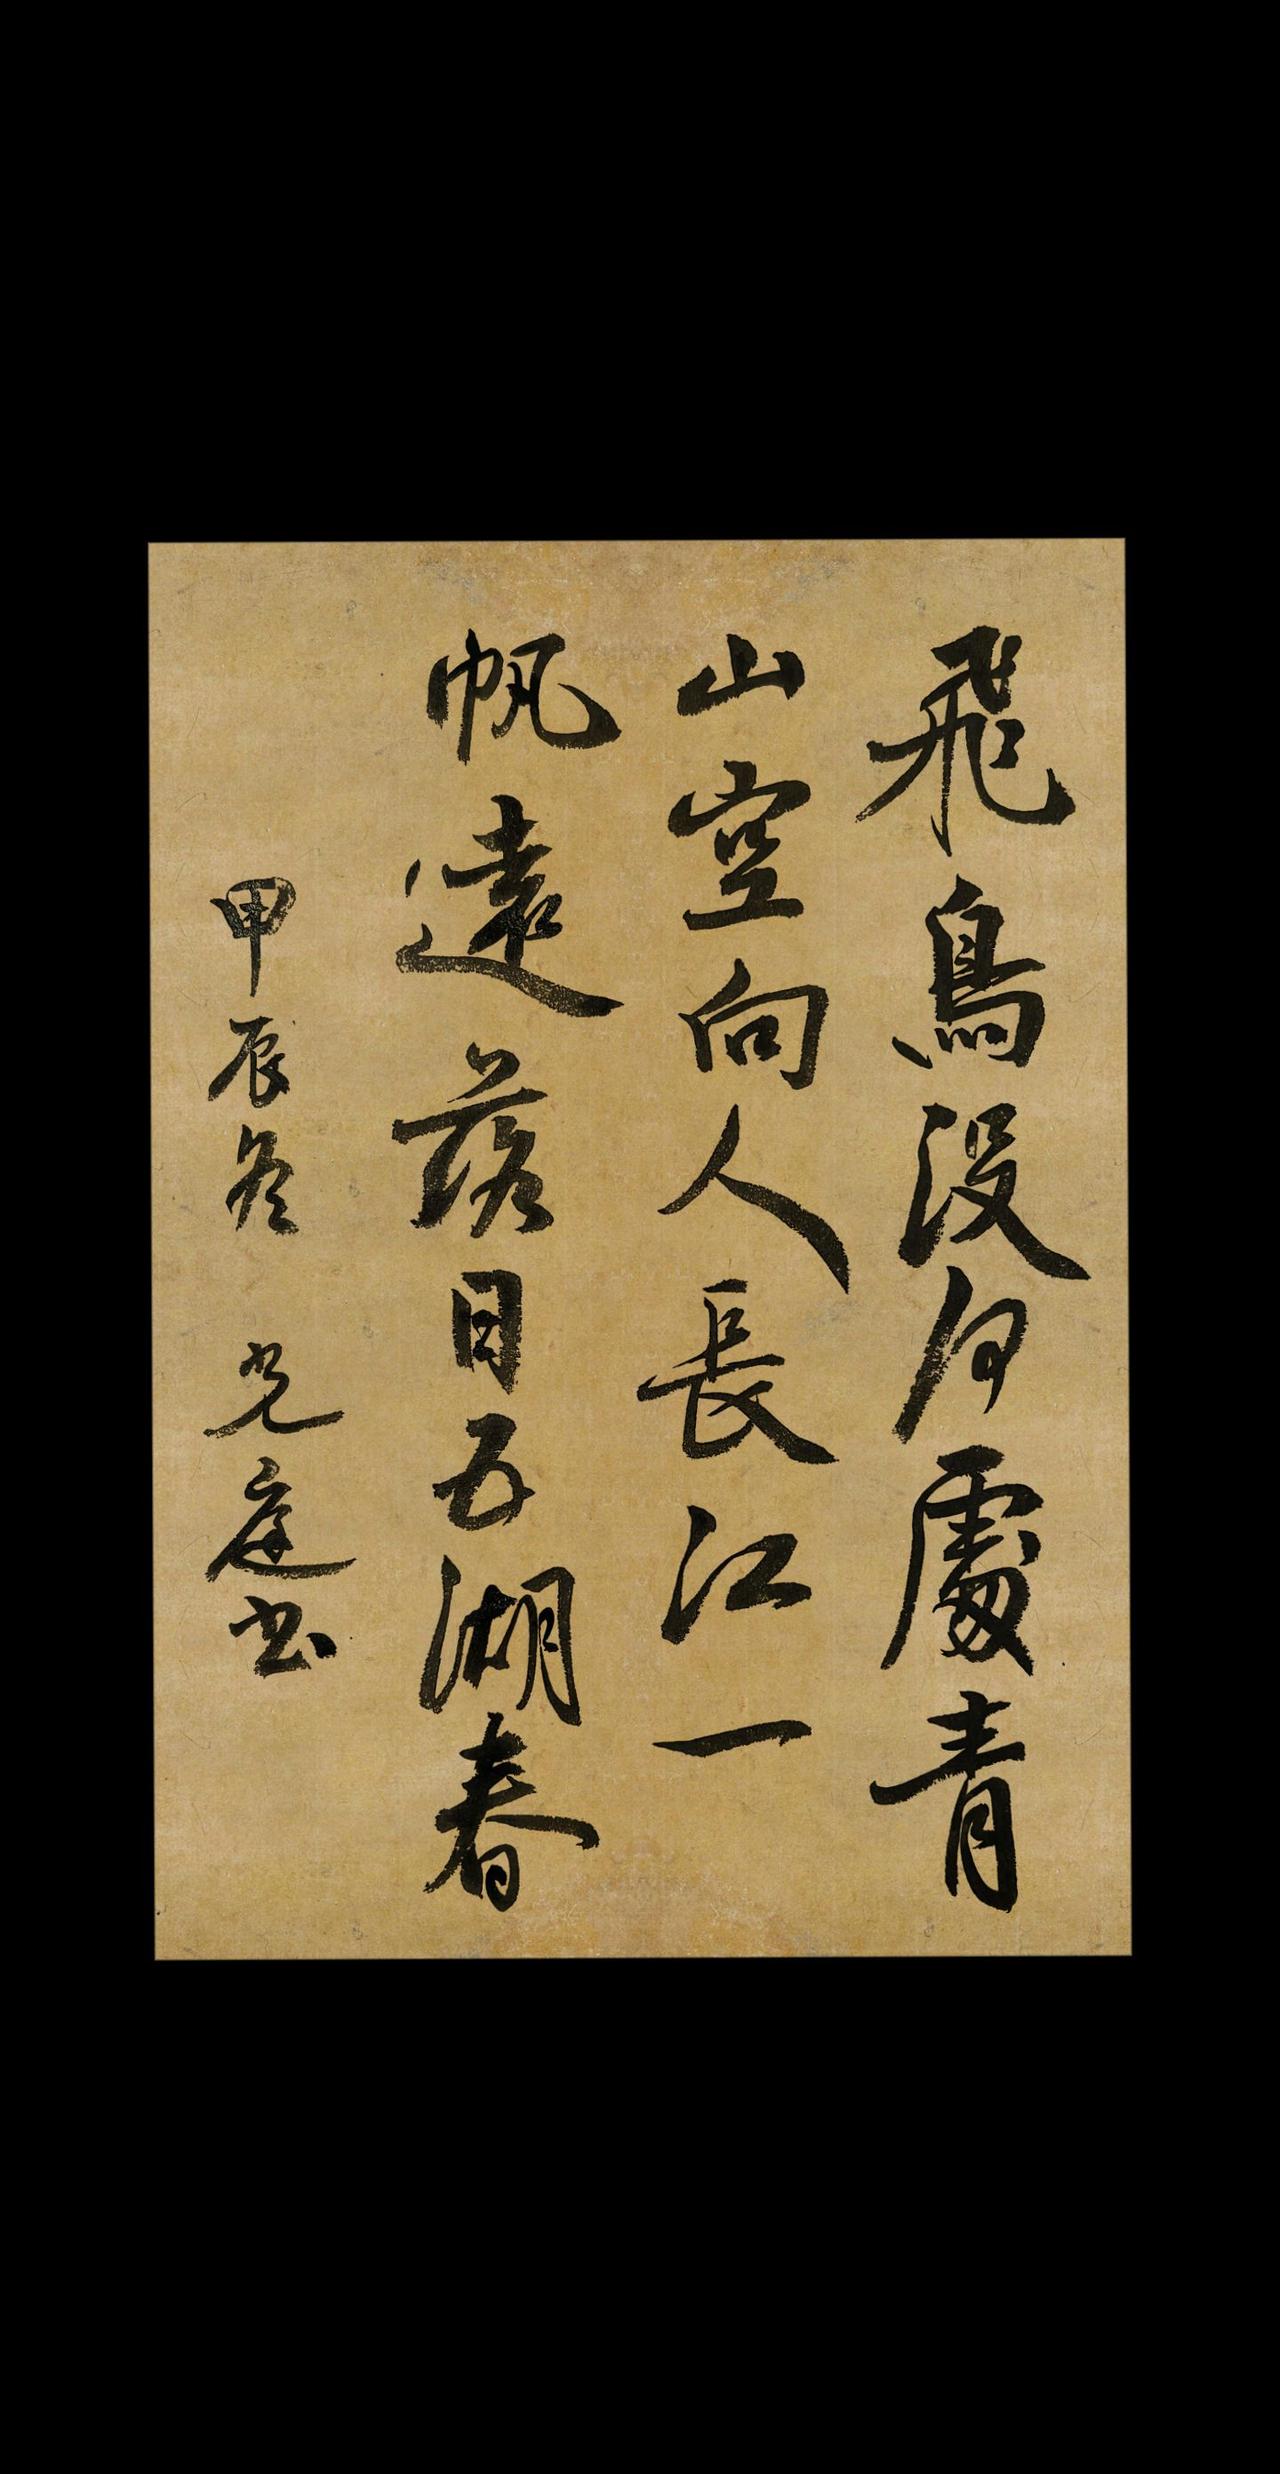 飛鳥没何處青
山空向人長江一
帆遠落日五湖春
甲辰冬 光庭书